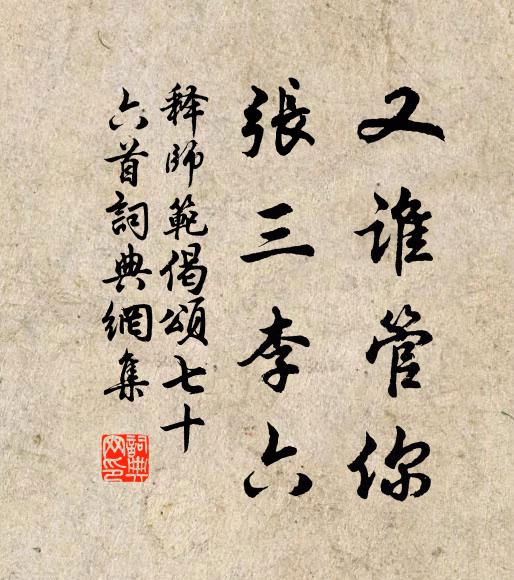 又誰管你
張三李六
释師範偈頌七十
六首詞典網集
詞典
网印